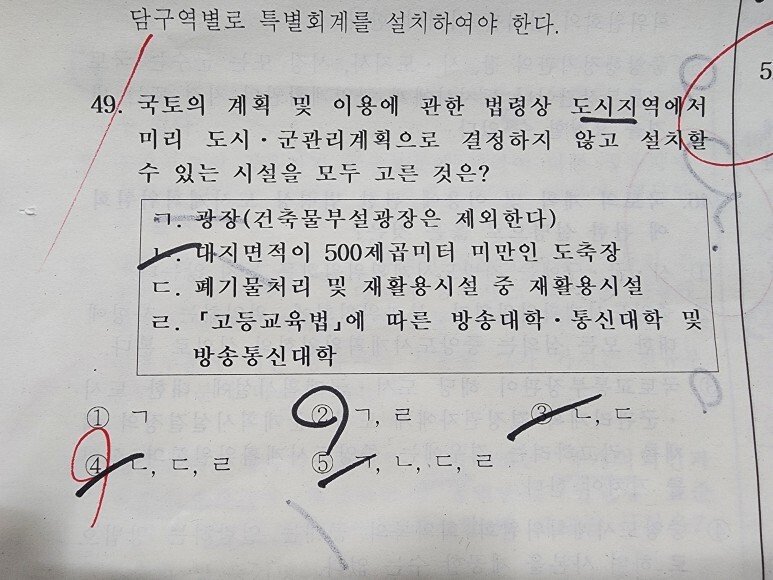 담구역별로 특별회계를 설치하여야 한다.
49. 국토의 계획 및 이용에 관한 법령상 도시지역에서
미리 도시·군관리계획으로 결정하지 않고 설치할
수 있는 시설을 모두 고른 것은?
ㄱ. 광장(건축물부설광장은 제외한다)
ㄴ. 대지면적이 500제곱미터 미만인 도축장
ㄷ. 폐기물처리 및 재활용시설 중 재활용시설
ㄹ. 「고등교육법」에 따른 방송대학·통신대학 및
방송통신대학
① ㄱ ② ㄱ, ㄹ ③ ㄴ, ㄷ
④ ㄴ, ㄷ, ㄹ ⑤ ㄱ, ㄴ, ㄷ, ㄹ
5